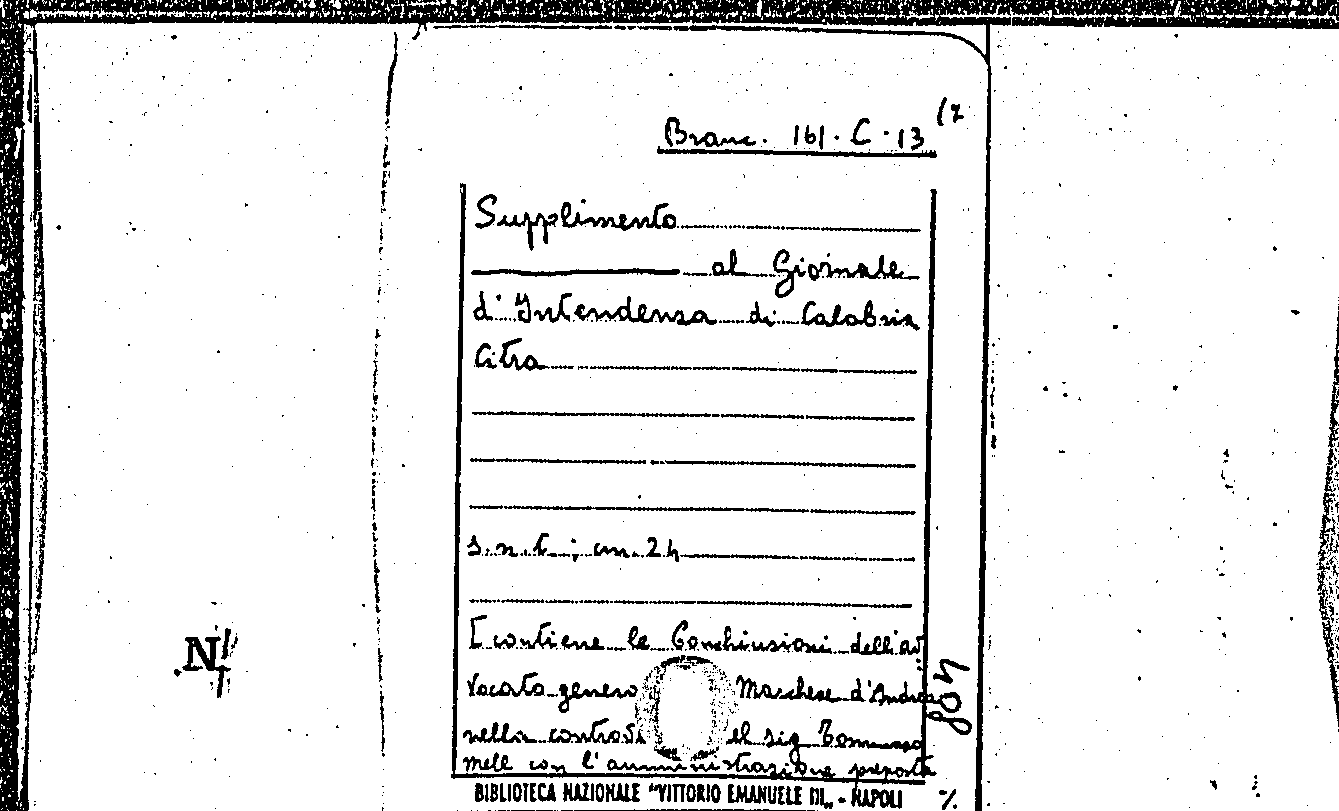 (7
Branc. 161. C. 13
Supplimento
al Giornale
d'Intendenza di Calabria
Citra
s.n.t. ; cm. 24
[contiene le Conchiusioni dell'av
vocato genera Marchese d'Andrea
nella controv el sig Tommaso
mele con l'amministrazione preposta
BIBLIOTECA NAZIONALE "VITTORIO EMANUELE III„ - NAPOLI
408
%
N